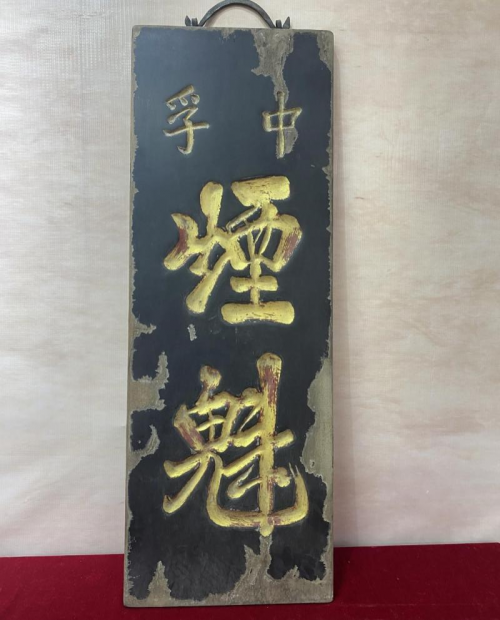 中孚
煙魁